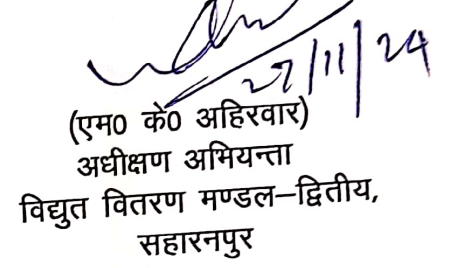 27/11/24
(एम0 के0 अहिरवार)
अधीक्षण अभियन्ता
विद्युत वितरण मण्डल–द्वितीय,
सहारनपुर